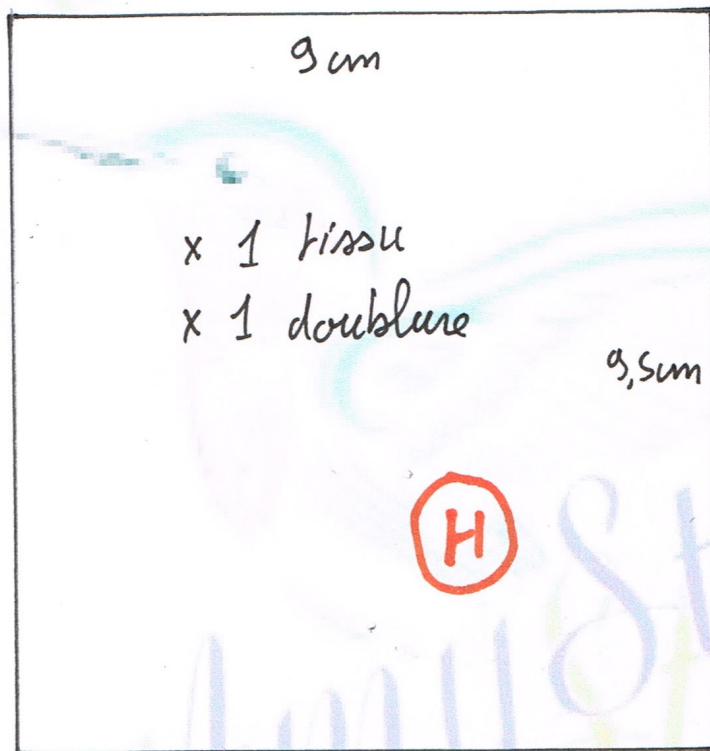 9 cm
x 1 tissu
x 1 doublure
9,5cm
H
Amy St